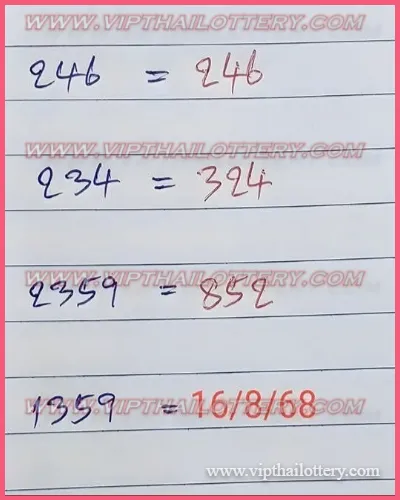 WWW.VIPTHAILOTTERY.COM
246 = 246
WWW.VIPTHAILOTTERY.COM
234 = 324
WWW.VIPTHAILOTTERY.COM
2359 = 852
WWW.VIPTHAILOTTERY.COM
1359 = 16/8/68
www.vipthailottery.com